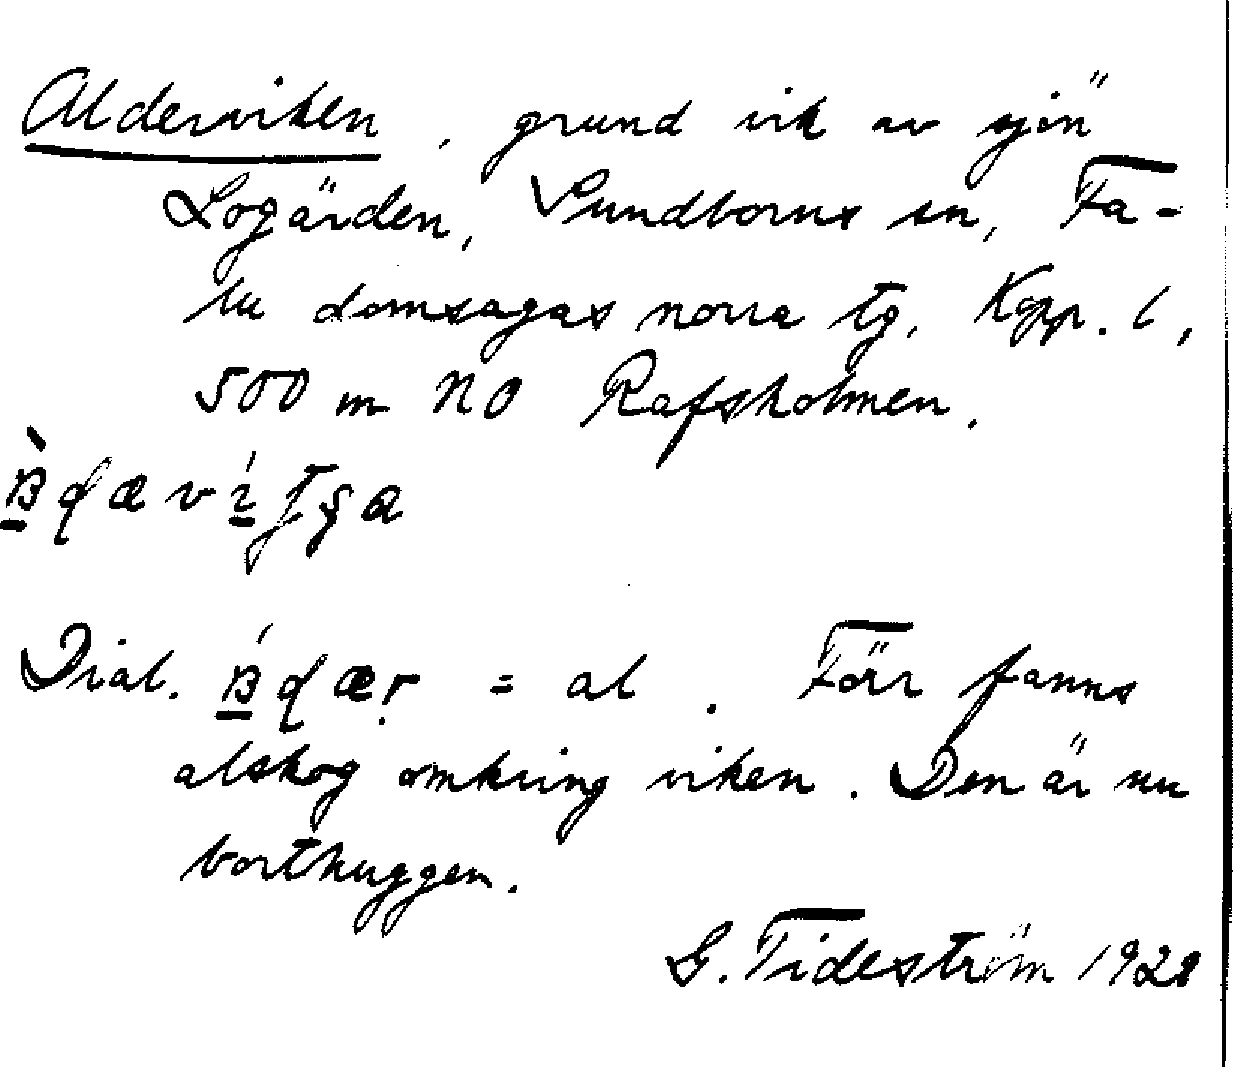 Alderviken, grund vik av sjön
Logärden, Sundborns sn, Fa-
lu domsagas norra tg. Kopp. l,
500 m NO Rafsholmen.
Dial. = al. Förr fanns
alskog omkring viken. Den är nu
borthuggen.
G. Tideström 1928